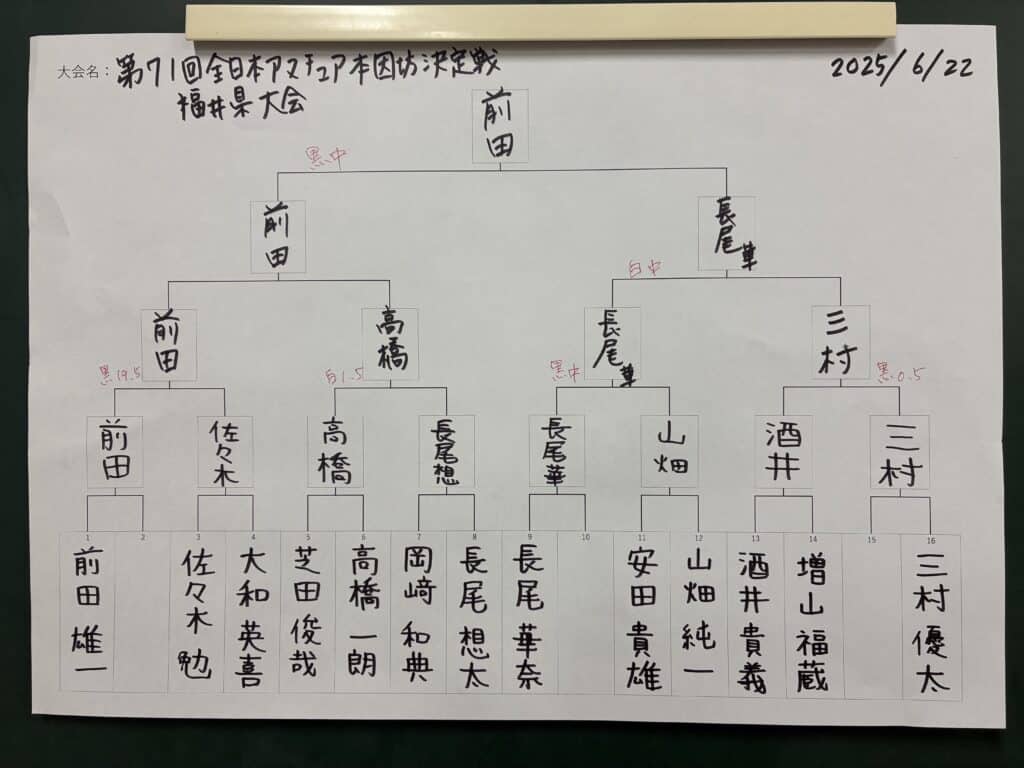 大会名：第71回全日本アマチュア本因坊決定戦
福井県大会
2025/6/22
前田
黒中
前田
長尾華
白中
前田
高橋
長尾華
三村
黒19.5
白1.5
黒中
黒0.5
前田
佐々木
高橋
長尾想
長尾華
山畑
酒井
三村
1 2 3 4 5 6 7 8 9 10 11 12 13 14 15 16
前田 雄一
佐々木 勉
大和 英喜
芝田 俊哉
高橋 一朗
岡﨑 和典
長尾 想太
長尾 華奈
安田 貴雄
山畑 純一
酒井 貴義
増山 福蔵
三村 優太